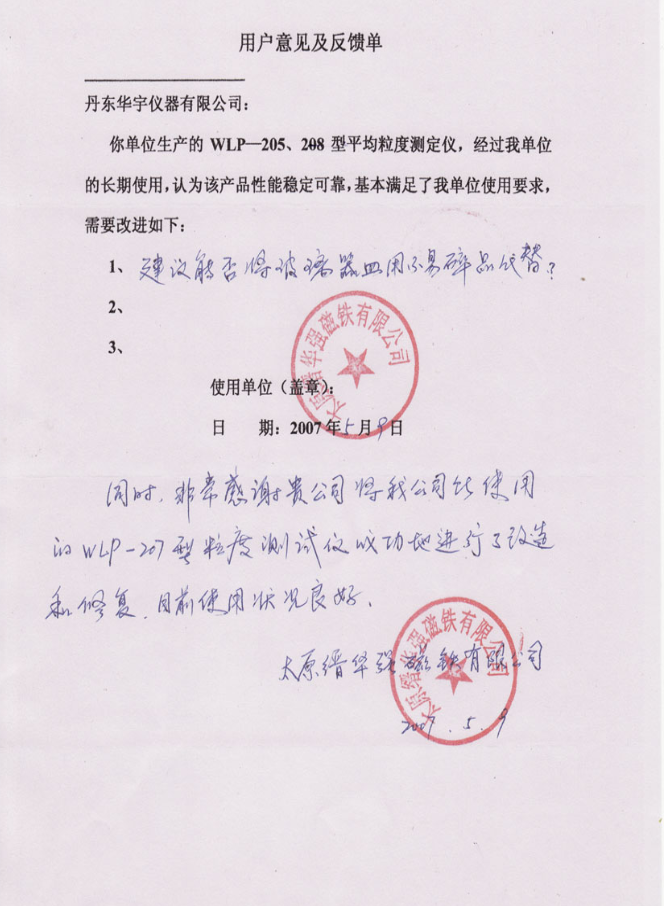 用户意见及反馈单
丹东华宇仪器有限公司：
你单位生产的 WLP—205、208 型平均粒度测定仪，经过我单位
的长期使用，认为该产品性能稳定可靠，基本满足了我单位使用要求，
需要改进如下：
1、建议能否将玻璃器皿用不易碎品代替？
2、
3、
太原缙华强磁铁有限公司
使用单位（盖章）：
日 期：2007年5月9日
同时，非常感谢贵公司将我公司所使用
的WLP-207型粒度测试仪成功地进行了改造
和修复，目前使用状况良好。
太原缙华强磁铁有限公司
太原缙华强磁铁有限公司
2007.5.9